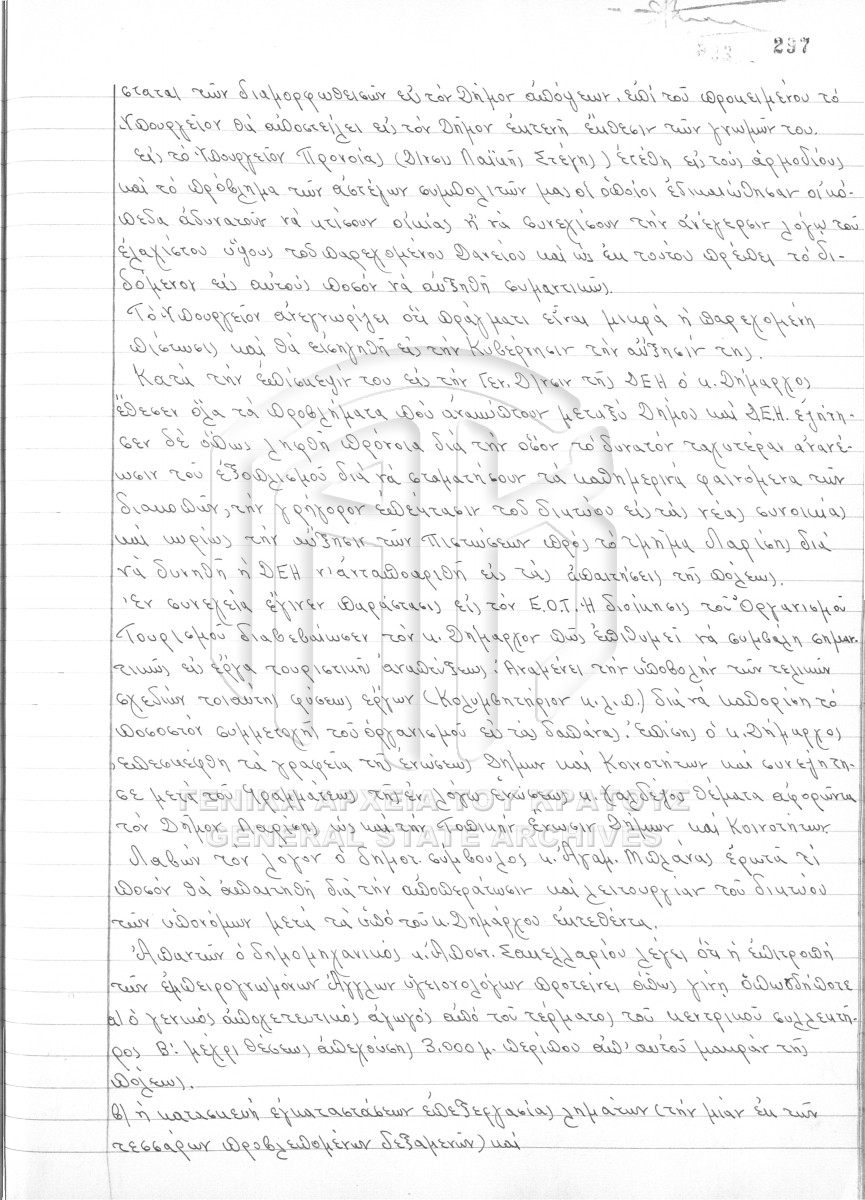 297
σταται τῶν διαμορφωθεισῶν εἰς τὸν Δῆμον ἀπόψεων. ἐπὶ τοῦ προκειμένου τὸ
Ὑπουργεῖον θὰ ἀποστείλει εἰς τὸν Δῆμον ἐκτενῆ ἔκθεσιν τῶν γνωμῶν του.
Εἰς τὸ Ὑπουργεῖον Προνοίας (Δ)νσις Λαϊκῆς Στέγης) ἐτέθη εἰς τοὺς ἁρμοδίους
καὶ τὸ πρόβλημα τῶν ἀστέγων συμπολιτῶν μας οἱ ὁποῖοι ἐδικαιώθησαν οἰκό-
πεδα ἀδυνατοῦν νὰ κτίσουν οἰκίας ἢ νὰ συνεχίσουν τὴν ἀνέγερσιν λόγῳ τοῦ
ἐλαχίστου ὕψους τοῦ παρεχομένου Δανείου καὶ ὡς ἐκ τούτου πρέπει τὸ δι-
δόμενον εἰς αὐτοὺς ποσὸν νὰ αὐξηθῆ σημαντικῶς.
Τὸ Ὑπουργεῖον ἀνεγνωρίζει ὅτι πράγματι εἶναι μικρὰ ἡ παρεχομένη
πίστωσις καὶ θὰ εἰσηγηθῆ εἰς τὴν Κυβέρνησιν τὴν αὔξησίν της.
Κατὰ τὴν ἐπίσκεψίν του εἰς τὴν Γεν. Δ)νσιν τῆς ΔΕΗ ὁ κ. Δήμαρχος
ἔθεσεν ὅλα τὰ προβλήματα ποὺ ἀνακύπτουν μεταξὺ Δήμου καὶ ΔΕΗ. ἐζήτη-
σεν δὲ ὅπως ληφθῆ πρόνοια διὰ τὴν ὅσον τὸ δυνατὸν ταχυτέραν ἀνανέ-
ωσιν τοῦ ἐξοπλισμοῦ διὰ νὰ σταματήσουν τὰ καθημερινὰ φαινόμενα τῶν
διακοπῶν, τὴν γρήγορον ἐπέκτασιν τοῦ δικτύου εἰς τὰς νέας συνοικίας
καὶ κυρίως τὴν αὔξησιν τῶν Πιστώσεων πρὸς τὸ τμῆμα Λαρίσης διὰ
νὰ δυνηθῆ ἡ ΔΕΗ ν' ἀνταποκριθῆ εἰς τὰς ἀπαιτήσεις τῆς πόλεως.
Ἐν συνεχείᾳ ἔγινεν παράστασις εἰς τὸν Ε.Ο.Τ. Ἡ διοίκησις τοῦ Ὀργανισμοῦ
Τουρισμοῦ διαβεβαίωσεν τὸν κ. Δήμαρχον πῶς ἐπιθυμεῖ νὰ συμβάλη σημαν-
τικῶς εἰς ἔργα τουριστικῆς ἀναπτύξεως. Ἀναμένει τὴν ὑποβολὴν τῶν τελικῶν
σχεδίων τοιαύτης φύσεως ἔργων (Κολυμβητήριον κ.λ.π.) διὰ νὰ καθορίση τὸ
ποσοστὸν συμμετοχῆς τοῦ ὀργανισμοῦ εἰς τὰς δαπάνας. Ἐπίσης ὁ κ. Δήμαρχος
ἐπεσκέφθη τὰ γραφεῖα τῆς ἑνώσεως Δήμων καὶ Κοινοτήτων καὶ συνεζήτη-
σε μετὰ τοῦ Γραμματέως τῆς ἐν λόγῳ ἑνώσεως κ. θέματα ἀφορῶντα
τὸν Δῆμον Λαρίσης ὡς καὶ τὴν Τοπικὴν Ἕνωσιν Δήμων καὶ Κοινοτήτων.
ΓΕΝΙΚΑ ΑΡΧΕΙΑ ΤΟΥ ΚΡΑΤΟΥΣ
GENERAL STATE ARCHIVES
Λαβὼν τὸν λόγον ὁ δημοτ. σύμβουλος κ. Ἀγαμ. Μπλάνας ἐρωτᾶ τί
ποσὸν θὰ ἀπαιτηθῆ διὰ τὴν ἀποπεράτωσιν καὶ λειτουργίαν τοῦ δικτύου
τῶν ὑπονόμων μετὰ τὰ ὑπὸ τοῦ κ. Δημάρχου ἐκτεθέντα.
Ἀπαντῶν ὁ δημομηχανικὸς κ. Ἀποστ. Σακελλαρίου λέγει ὅτι ἡ ἐπιτροπὴ
τῶν ἐμπειρογνωμόνων Ἄγγλων ὑγειονολόγων προτείνει ὅπως γίνη ὁπωσδήποτε
α) ὁ γενικὸς ἀποχετευτικὸς ἀγωγὸς ἀπὸ τοῦ τέρματος τοῦ κεντρικοῦ συλλεκτῆ-
ρος Β': μέχρι θέσεως ἀπεχούσης 3.000 μ. περίπου ἀπ' αὐτοῦ μακρὰν τῆς
πόλεως.
β) ἡ κατασκευὴ ἐγκαταστάσεων ἐπεξεργασίας λημάτων (τὴν μίαν ἐκ τῶν
τεσσάρων προβλεπομένων δεξαμενῶν) καὶ